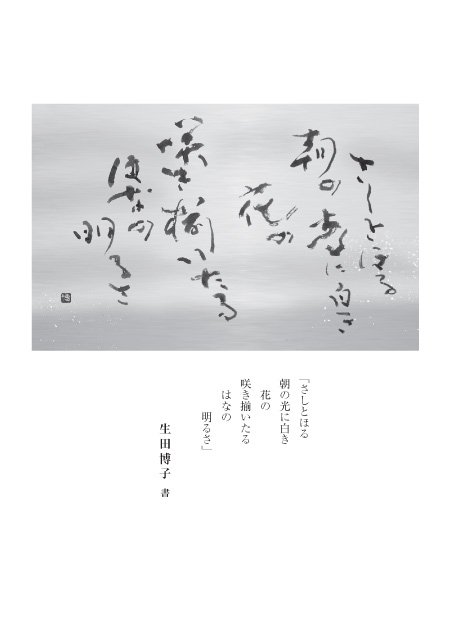 さしとほる
朝の光に白き
花の
咲き揃いたる
はなの
明るさ
「さしとほる
朝の光に白き
花の
咲き揃いたる
はなの
明るさ」
生田博子 書